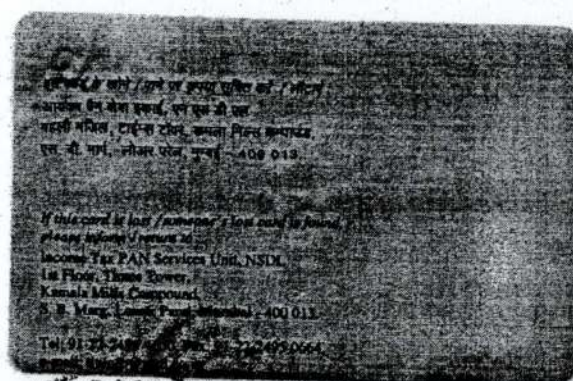 इस कार्ड के खोने / पाने पर कृपया सूचित करें / लौटाएं
आयकर पैन सेवा इकाई, एन एस डी एल
पहली मंजिल, टाईम्स टॉवर, कमला मिल्स कम्पाउंड,
एस. बी. मार्ग, लोअर परेल, मुम्बई - 400 013.
If this card is lost / someone's lost card is found,
please inform / return to
Income Tax PAN Services Unit, NSDL
1st Floor, Times Tower,
Kamala Mills Compound,
S. B. Marg, Lower Parel, Mumbai - 400 013.
Tel: 91-22-2499 Fax: 91-22-2495 0664,